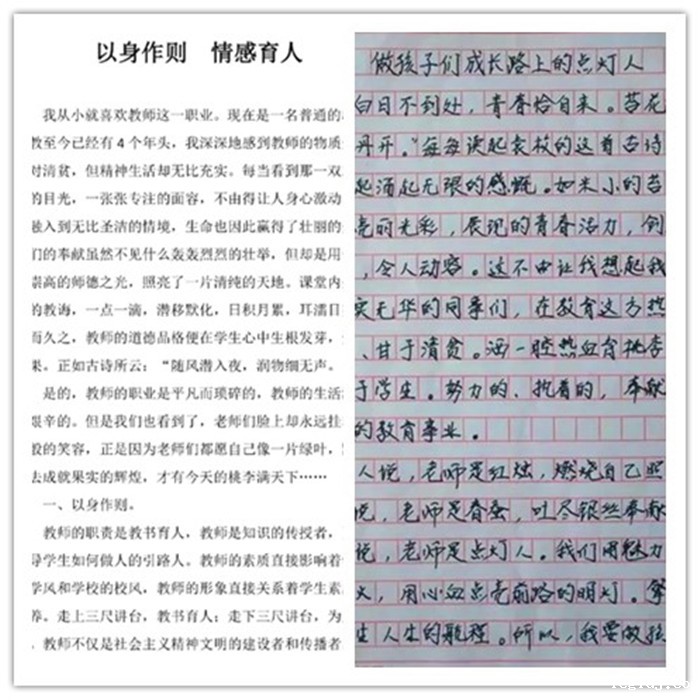 以身作则　情感育人
我从小就喜欢教师这一职业。现在是一名普通的
教至今已经有4个年头，我深深地感到教师的物质
对清贫，但精神生活却无比充实。每当看到那一双
的目光，一张张专注的面容，不由得让人身心激动
融入到无比圣洁的情境，生命也因此赢得了壮丽的
们的奉献虽然不见什么轰轰烈烈的壮举，但却是用
崇高的师德之光，照亮了一片清纯的天地。课堂内
的教诲，一点一滴，潜移默化，日积月累，耳濡目
而久之，教师的道德品格便在学生心中生根发芽，
果。正如古诗所云：“随风潜入夜，润物细无声。
是的，教师的职业是平凡而琐碎的，教师的生活
艰辛的。但是我们也看到了，老师们脸上却永远挂
般的笑容，正是因为老师们都愿自己像一片绿叶，
去成就果实的辉煌，才有今天的桃李满天下……
一、以身作则。
教师的职责是教书育人，教师是知识的传授者，
导学生如何做人的引路人。教师的素质直接影响着
学风和学校的校风，教师的形象直接关系着学生素
养。走上三尺讲台，教书育人；走下三尺讲台，为
。教师不仅是社会主义精神文明的建设者和传播者
做孩子们成长路上的点灯人
白日不到处，青春恰自来。苔花
丹开。”每每读起袁枚的这首古诗
起涌起无限的感慨。如米小的苔
亮丽光彩，展现的青春活力，创
，令人动容。这不由让我想起我
实无华的同事们，在教育这方热
、甘于清贫。洒一腔热血育桃李
于学生。努力的、执着的，奉献
的教育事业。
人说，老师是红烛，燃烧自己照
说，老师是春蚕，吐尽银丝奉献
说，老师是点灯人。我们用魅力
火，用心血点亮前路的明灯。擎
生人生的航程。所以，我要做孩